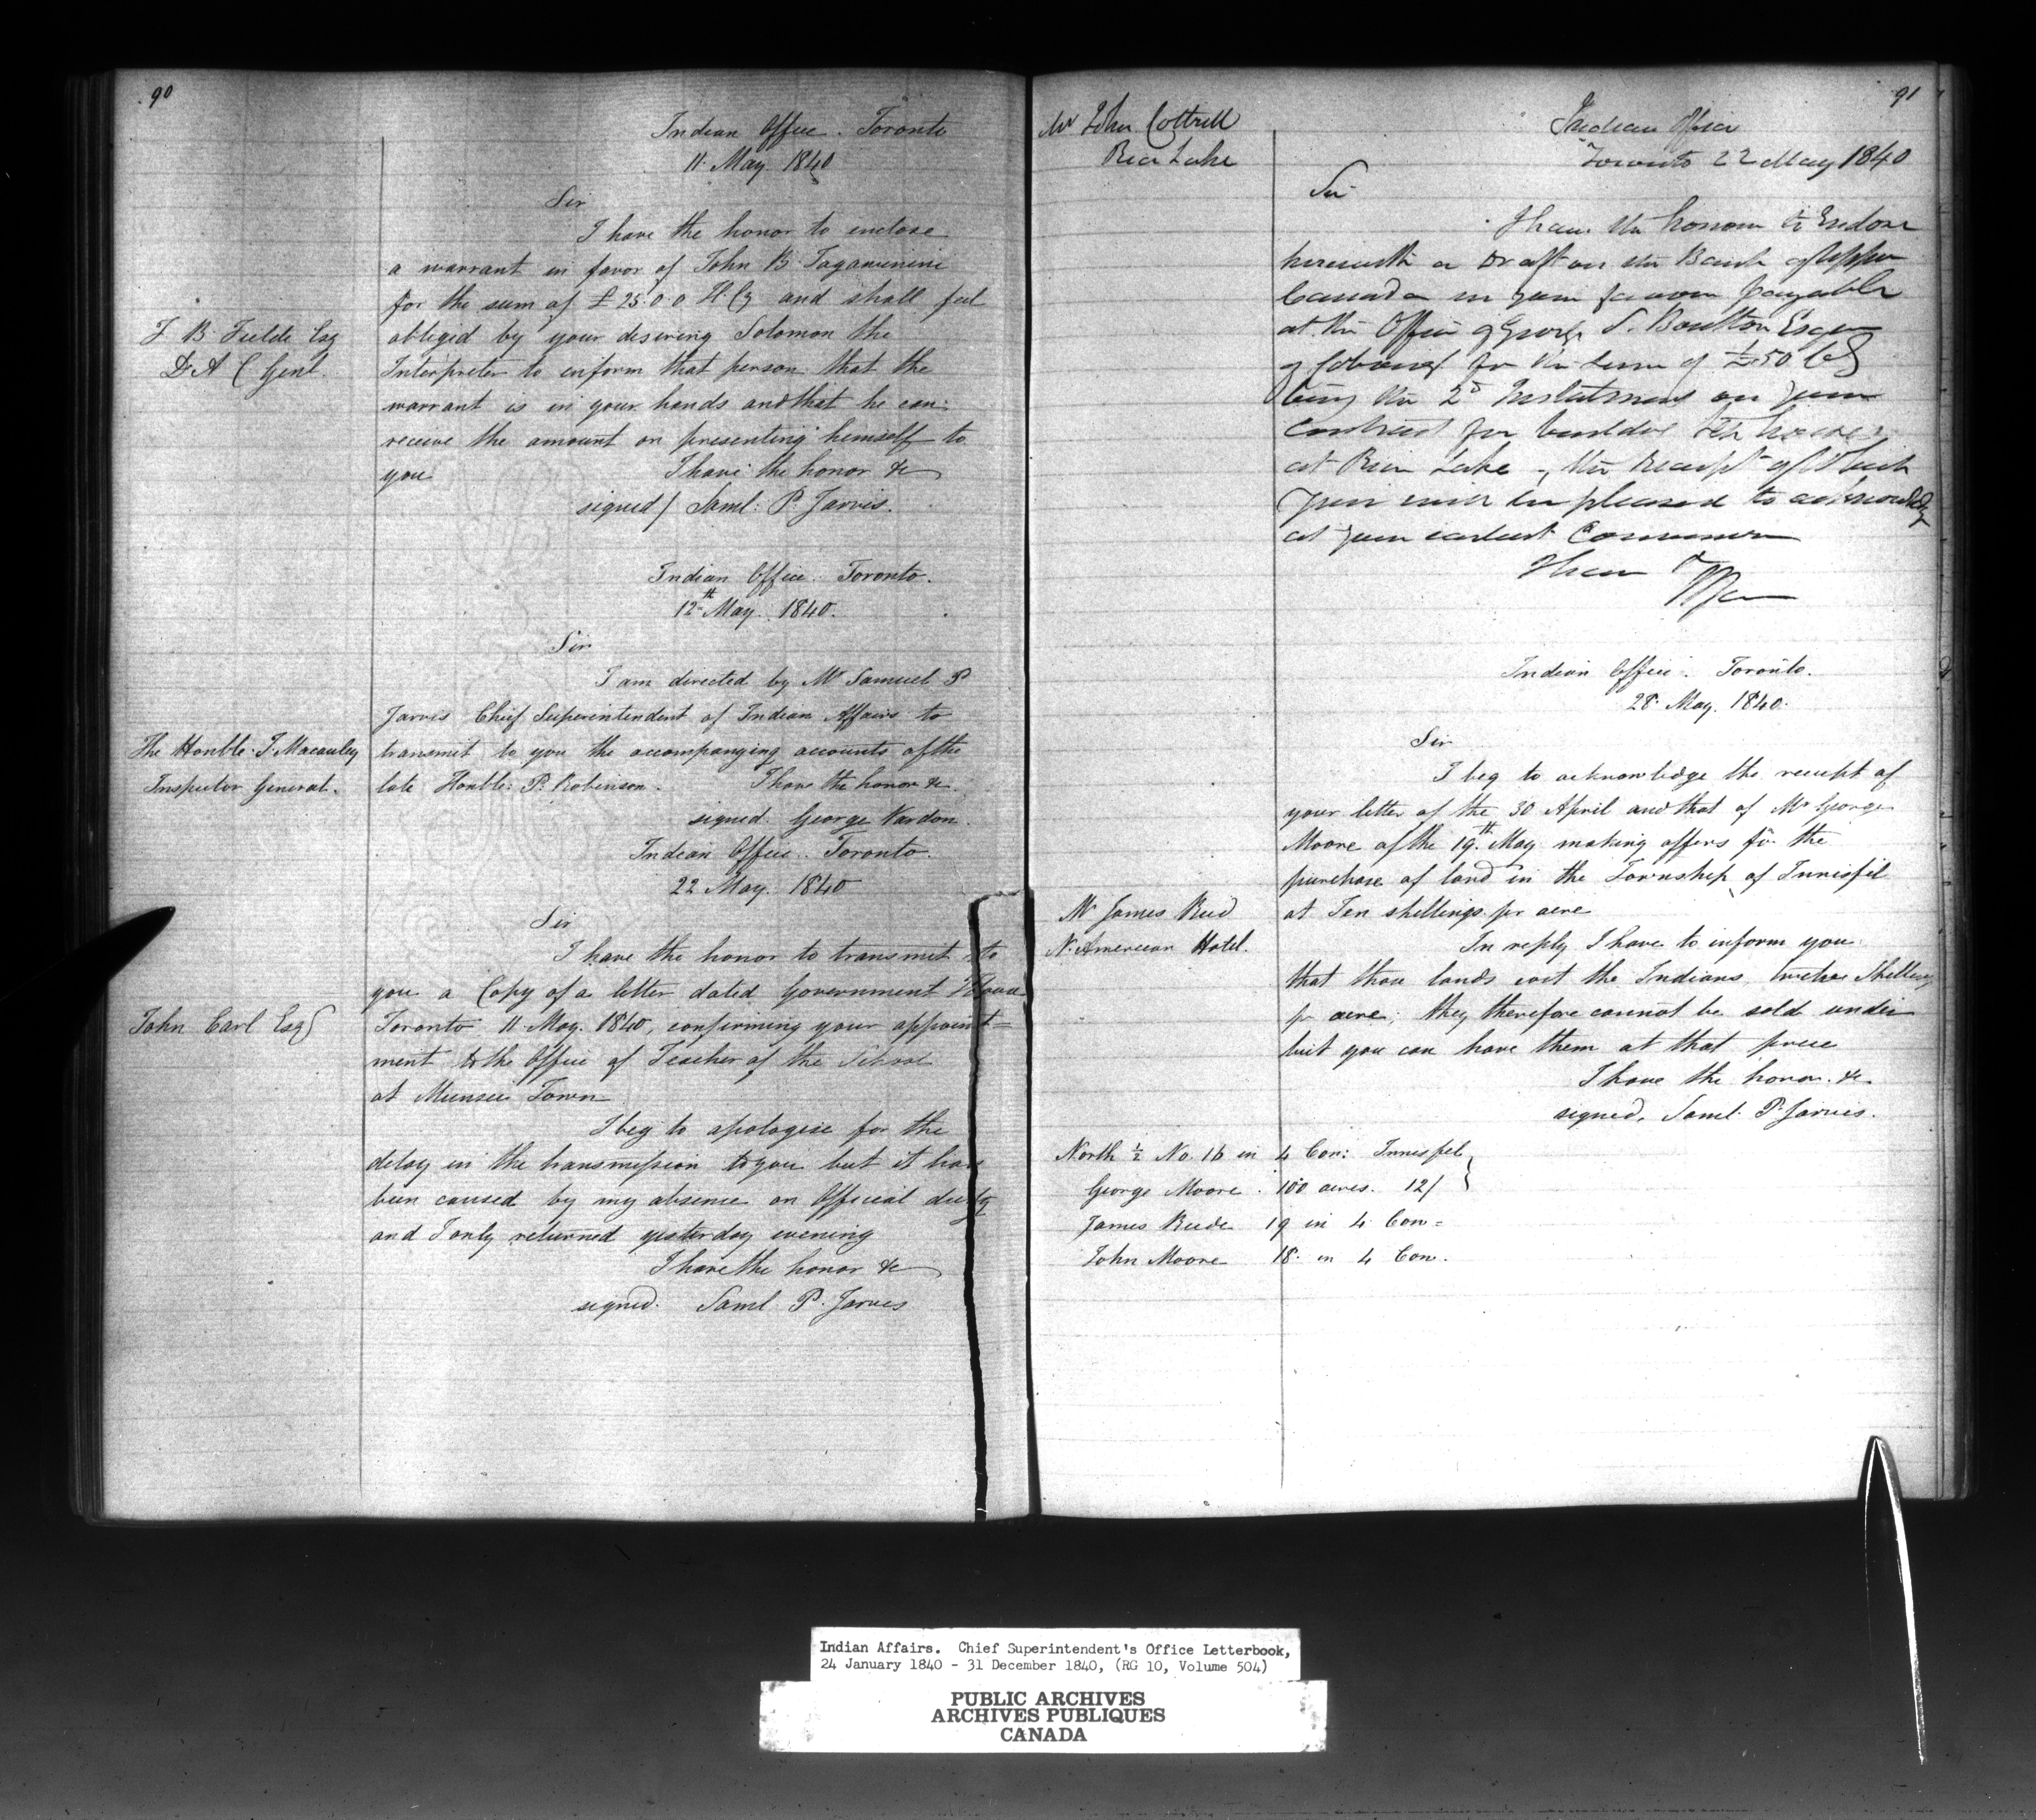 90
Indian Office. Toronto
11. May 1840
Sir
I have the honor to enclose
a warrant in favor of John B. Tagawinini
for the sum of £ 25.0.0 H. Cy and shall feel
F B. Fielde Esq
D. A C Genl.
obliged by your desiring Solomon the
Interpreter to inform that person that the
warrant is in your hands and that he can
receive the amount on presenting himself to
you I have the honor &c
signed / Saml. P. Jarvis.
Indian Office. Toronto.
12th May. 1840.
Sir
I am directed by Mr Samuel P
Jarvis Chief Superintendent of Indian Affairs to
The Honble. J. Macauley
Inspector General.
transmit to you the accompanying accounts of the
late Honble. P. Robinson. I have the honor &c.
signed. George Vardon.
Indian Office. Toronto.
22 May. 1840
Sir
I have the honor to transmit to
you a Copy of a letter dated Government House
John Carl Esqr
Toronto 11 May. 1840, confirming your appoint=
ment to the Office of Teacher of the School
at Munsee Town
I beg to apologise for the
delay in the transmission to you but it has
been caused by my absence on Official duty
and I only returned yesterday evening
I have the honor &c
signed. Saml P. Jarvis
91
Mr John Cottrell
Rice Lake
Indian Office
Toronto 22 May 1840
Sir
I have the honour to Enclose
herewith a Draft on the Bank of Upper
Canada in your favour payable
at the Office of George S. Boulton Esqr
of Cobourg for the sum of £50 Cy
being the 2d Instalment on your
Contract for building houses
at Rice Lake, the Receipt of which
you will be pleased to acknowledge
at your earliest Convenience
I have
Indian Office. Toronto.
28. May. 1840.
Sir
I beg to acknowledge the receipt of
your letter of the 30 April and that of Mr George
Moore of the 19th May making offers for the
purchase of land in the Township of Innisfil
Mr James Reid
N. American Hotel.
at Ten shillings pr acre
In reply I have to inform you
that those lands cost the Indians twelve Shillings
pr acre; they therefore cannot be sold under
but you can have them at that price
I have the honor. &c.
signed. Saml. P. Jarvis.
North ½ No. 16 in 4 Con: Innisfil
George Moore. 100 acres. 12/
James Reede 19 in 4 Con=
John Moore 18. in 4 Con.
Indian Affairs. Chief Superintendent's Office Letterbook,
24 January 1840 - 31 December 1840, (RG 10, Volume 504)
PUBLIC ARCHIVES
ARCHIVES PUBLIQUES
CANADA